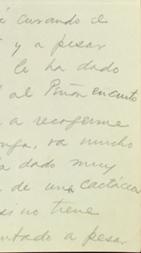 cuando el
y a pesar
le ha dado
al Piñon encanto
a recogerme
va mucho
dado muy
de una cactácea
no tiene
a pesar